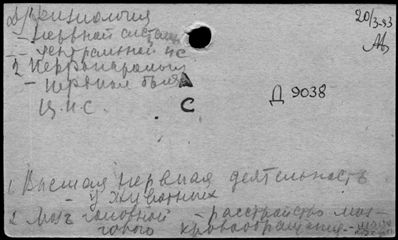 2) Физиология
- нервной системы
- центральной нс
2 Нейрофизиология
- нервная
ц.н.с.
А
С
20/3-93
Д 9038
1. Высшая нервная деятельность
- у животных
2. Мозг головной - расстройство моз-
гового кровообращения -